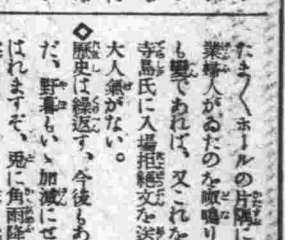 たま〱ホールの片隅に
業婦人がゐたのを呶鳴り
も變であれば、又これを
寺島氏に入場拒絶文を送
大人氣がない。
◇
歴史は繰返す、今後もあ
だ、野暮もいゝ加減にせ
ばれますぞ、兎に角雨降